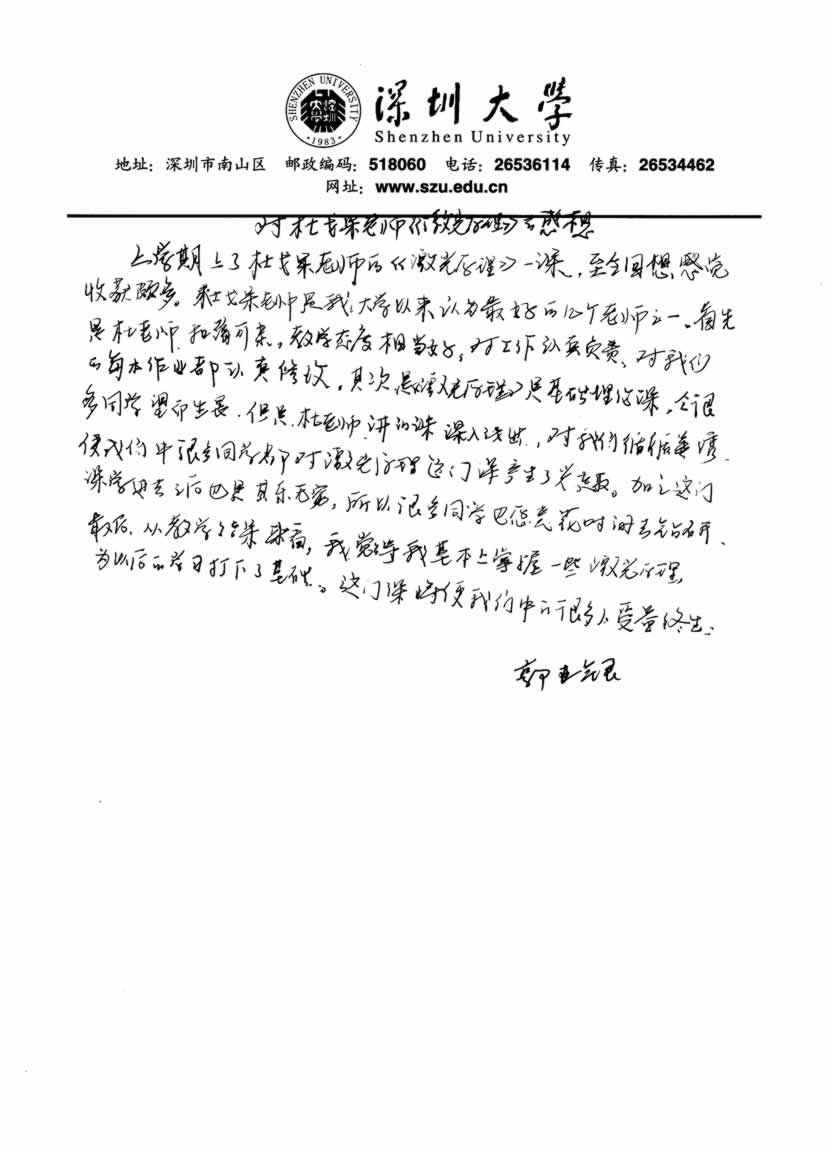 SHENZHEN UNIVERSITY
深圳大学
·1983·
深圳大學
Shenzhen University
地址：深圳市南山区 邮政编码：518060 电话：26536114 传真：26534462
网址：www.szu.edu.cn
对杜戈果老师《激光原理》的感想
上学期上了杜戈果老师的《激光原理》一课，至今回想感觉
收获颇多。杜戈果老师是我大学以来认为最好的几个老师之一。首先
是杜老师和蔼可亲，教学态度相当好，对工作认真负责、对我们
的每本作业都认真修改。其次是《激光原理》是基础理论课，令很
多同学望而生畏，但是杜老师讲的课深入浅出，对我们循循善诱，
使我们中很多同学都对激光原理这门课产生了兴趣。加之这门
课学进去之后也是其乐无穷，所以很多同学也愿意花时间去钻研，
最后，从教学结果来看，我觉得我基本上掌握一些激光原理，
为以后的学习打下了基础。这门课将使我们中的很多人受益终生。